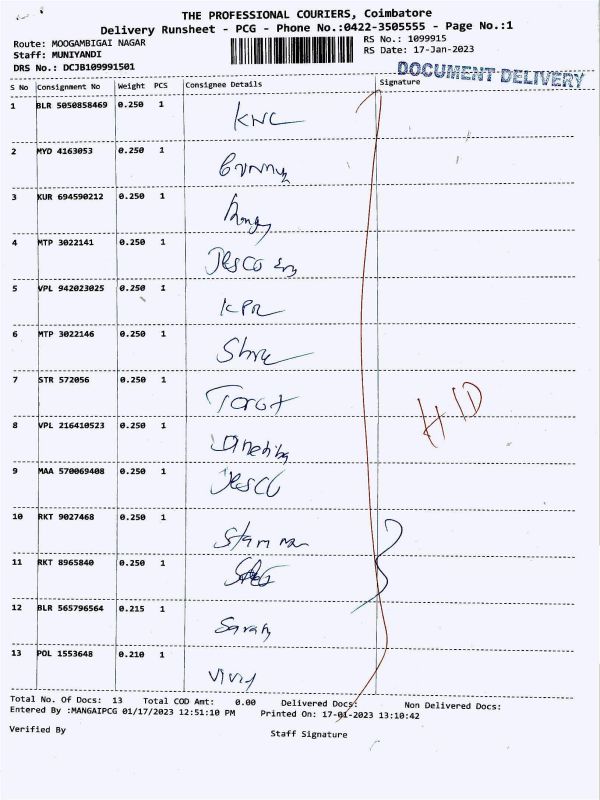 THE PROFESSIONAL COURIERS, Coimbatore
Delivery Runsheet - PCG - Phone No.:0422-3505555 - Page No.:1
Route: MOOGAMBIGAI NAGAR RS No.: 1099915
Staff: MUNIYANDI RS Date: 17-Jan-2023
DRS No.: DCJB109991501
DOCUMENT DELIVERY
S No Consignment No Weight PCS Consignee Details Signature
1 BLR 5050858469 0.250 1 KNC
2 MYD 4163053 0.250 1
3 KUR 694590212 0.250 1
4 MTP 3022141 0.250 1 Jesco
5 VPL 942023025 0.250 1 KPR
6 MTP 3022146 0.250 1 Shre
7 STR 572056 0.250 1
H ID
8 VPL 216410523 0.250 1
9 MAA 570069408 0.250 1 Jesco
10 RKT 9027468 0.250 1
11 RKT 8965840 0.250 1
12 BLR 565796564 0.215 1 Sarah
13 POL 1553648 0.210 1
Total No. Of Docs: 13 Total COD Amt: 0.00 Delivered Docs: Non Delivered Docs:
Entered By :MANGAIPCG 01/17/2023 12:51:10 PM Printed On: 17-01-2023 13:10:42
Verified By Staff Signature